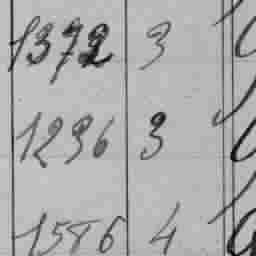 1372 3
1236 3
1586 4